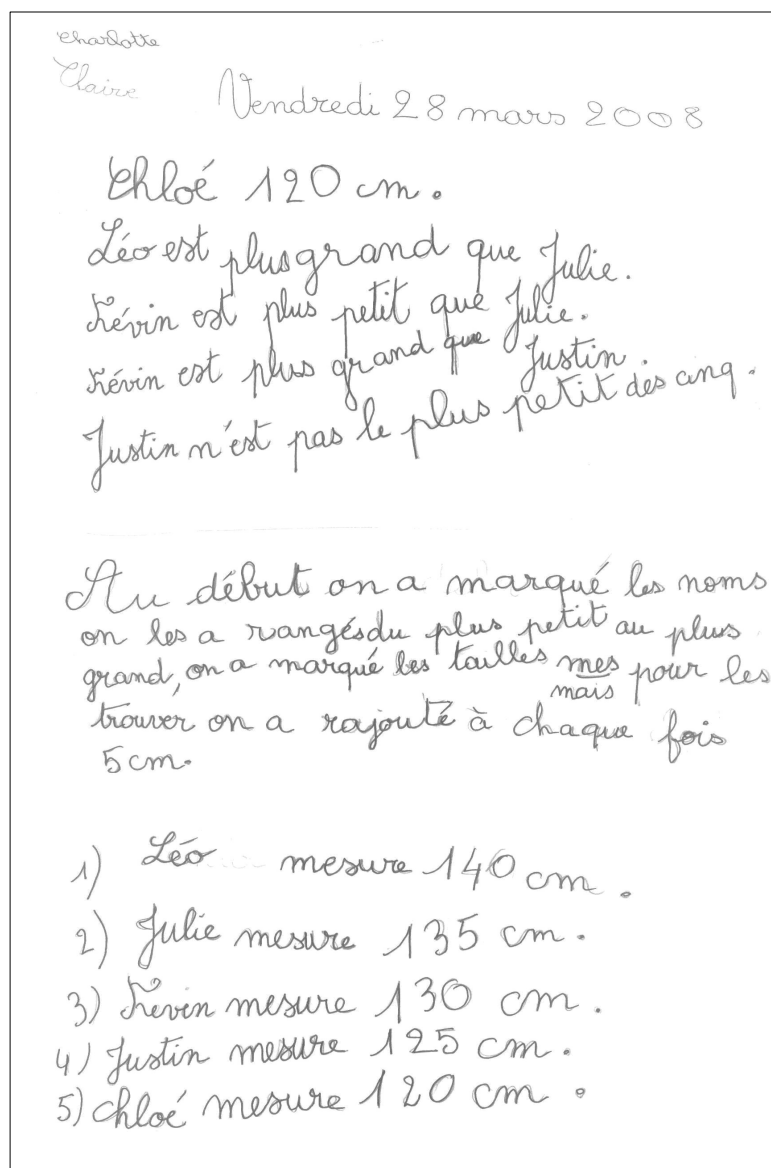 Charlotte
Claire
Vendredi 28 mars 2008
Chloé 120 cm.
Léo est plus grand que Julie.
Kévin est plus petit que Julie.
Kévin est plus grand que Justin.
Justin n'est pas le plus petit des cinq.
Au début on a marqué les noms
on les a rangés du plus petit au plus
grand, on a marqué les tailles mes pour les
mais
trouver on a rajouté à chaque fois
5 cm.
1) Léo mesure 140 cm.
2) Julie mesure 135 cm.
3) Kevin mesure 130 cm.
4) Justin mesure 125 cm.
5) Chloé mesure 120 cm.